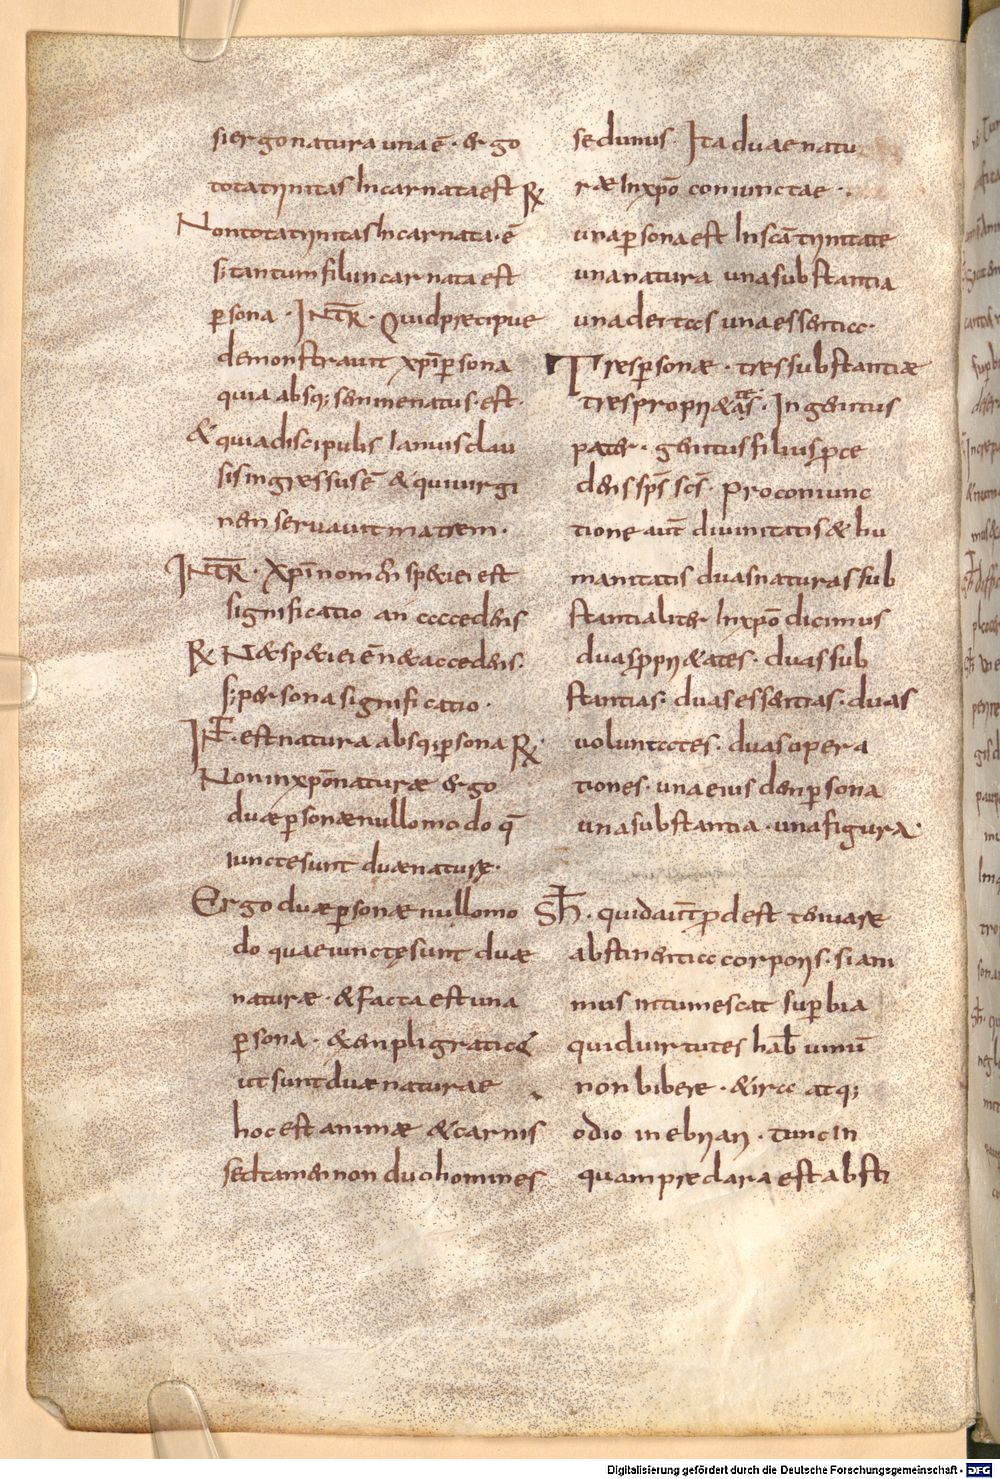 si ergo natura una ē · & go
tota trinitas Incarnata est R̷
Non tota trinitas Incarnata · ē
s; tantum filii Incarnata est
p̱sona · INTR̄ · Quid precipue
demonstrauit xp̄i p̱sona
quia absq; semine natus · est ·
& quia discipulis Ianuis clau
sis ingressus ē & qui uirgi
nem seruauit matrem ·
INTR̄ · Xp̄i nomen speciei est
significatio an accedens
R̷ Nec speciei ē nec accedens ·
s; personae significatio ·
INT̄ · est natura absq; p̱sona R̷
Non in xp̄o naturae ergo
duae p̱sonae nullo modo q̄
iuncte sunt duae naturae ·
Ergo duae p̱sonae nullo mo
do quae iuncte sunt duae
naturae · & facta est una
p̱sona · & exempli gratia
ut sunt duae naturae
hoc est animae & carnis
sed tamen non duo homines
sed unus · Ita duae natu
rae In xp̄o coniunctae · .
una p̱sona est In scā trinitate
una natura una substantia
una deitas una essentia ·
Tres p̱sonae · tres substantiae
tres propri&ates · Ingenitus
pater · genitus filius p̱ce
dens sp̄s sc̄s · Pro coniunc
tione aut̄ diuinitatis & hu
manitatis duas naturas sub
stantialiter In xp̄o dicimus
duas p̱pri&ates · duas sub
stantias · duas essentias · duas
uoluntates · duas opera
tiones · una eius dem p̱sona
una substantia · una figura ·
SH̄ · quid aut̄ p̱dest tenuare
abstinentia corporis · si ani
mus intumescat sup̱bia
quid uirtutes hab̄ uinū
non bibere · & ira atq;
odio inebriari · tunc in
quam preclara est absti